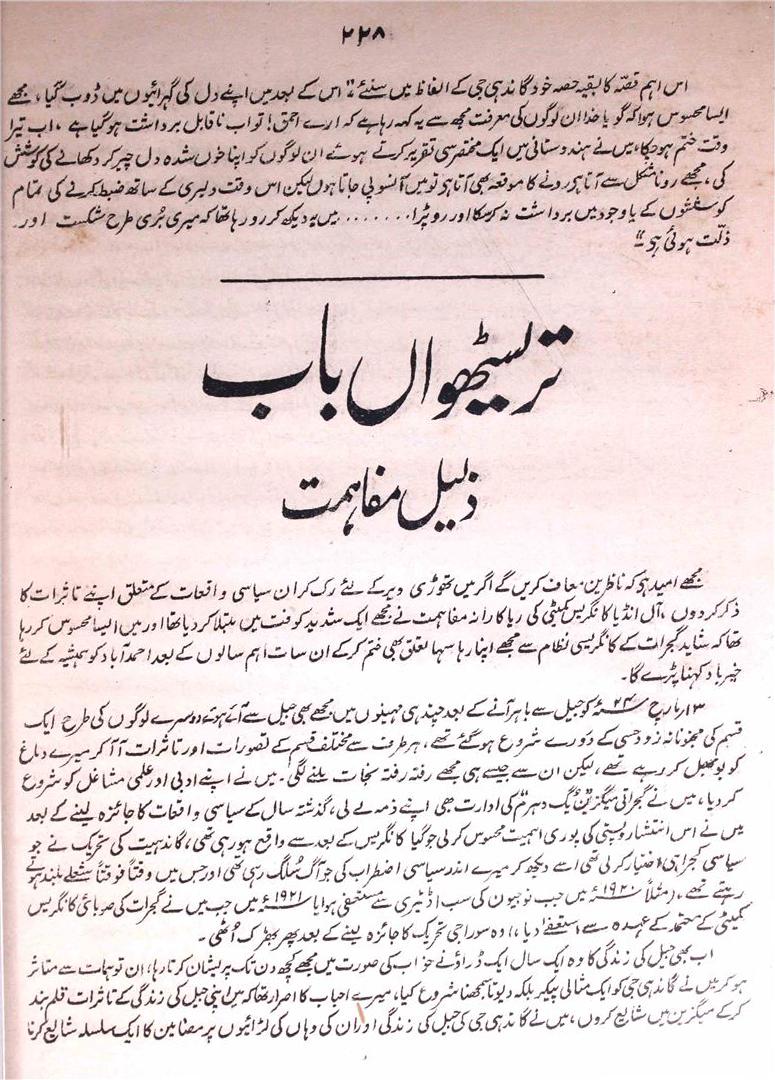 ۲۲۸
اس اہم قصّہ کا بقیہ حصہ خود گاندھی جی کے الفاظ میں سنئے "اس کے بعد میں اپنے دل کی گہرائیوں میں ڈوب گیا، مجھے
ایسا محسوس ہوا کہ گویا خدا ان لوگوں کی معرفت مجھ سے یہ کہہ رہا ہے کہ ارے احمق! تو اب ناقابل برداشت ہوگیا ہے، اب تیرا
وقت ختم ہوچکا، میں نے ہندوستانی میں ایک مختصر سی تقریر کرتے ہوئے ان لوگوں کو اپنا خوں شدہ دل چیر کر دکھانے کی کوشش
کی، مجھے رونا مشکل سے آتا ہی رونے کا موقعہ بھی آتا ہو تو میں آنسو پی جاتا ہوں لیکن اس وقت دلیری کے ساتھ ضبط کرنے کی تمام
کوششوں کے باوجود میں برداشت نہ کرسکا اور رو پڑا ........ میں یہ دیکھ کر رو رہا تھا کہ میری بُری طرح شکست اور
ذلّت ہوئی ہی"
تریسٹھواں باب
ذلیل مفاہمت
مجھے امید ہی کہ ناظرین معاف کریں گے اگر میں تھوڑی دیر کے لئے رک کر ان سیاسی واقعات کے متعلق اپنے تاثرات کا
ذکر کردوں، آل انڈیا کانگریس کمیٹی کی ریاکارانہ مفاہمت نے مجھے ایک شدید کوفت میں مبتلا کردیا تھا اور میں ایسا محسوس کر رہا
تھا کہ شاید گجرات کے کانگریسی نظام سے مجھے اپنا رہا سہا تعلق بھی ختم کرکے ان سات اہم سالوں کے بعد احمدآباد کو ہمیشہ کے لئے
خیرباد کہنا پڑے گا۔
۱۳ مارچ ۲۴ء کو جیل سے باہر آنے کے بعد چند ہی مہینوں میں مجھے بھی جیل سے آئے ہوئے دوسرے لوگوں کی طرح ایک
قسم کی مجنونانہ زود حسی کے دورے شروع ہوگئے تھے، ہر طرف سے مختلف قسم کے تصورات اور تاثرات آآ کر میرے دماغ
کو بوجھل کر رہے تھے، لیکن ان سے جیسے ہی مجھے رفتہ رفتہ نجات ملنے لگی۔ میں نے اپنے ادبی اور علمی مشاغل کو شروع
کردیا، میں نے گجراتی میگزین "یگ دھرم" کی ادارت بھی اپنے ذمہ لے لی، گذشتہ سال کے سیاسی واقعات کا جائزہ لینے کے بعد
میں نے اس انتشار و پستی کی پوری اہمیت محسوس کرلی جو گیا کانگریس کے بعد سے واقع ہورہی تھی، گاندھیت کی تحریک نے جو
سیاسی کجراہی اختیار کرلی تھی اسے دیکھ کر میرے اندر سیاسی اضطراب کی جو آگ سُلگ رہی تھی اور جس میں وقتاً فوقتاً شعلے بلند ہوتے
رہتے تھے، (مثلاً ۱۹۲۰ء میں جب نوجیون کی سب اڈیٹری سے مستعفی ہوا یا ۱۹۲۱ء میں جب میں نے گجرات کی صوبائی کانگریس
کمیٹی کے معتمد کے عہدہ سے استعفےٰ دیا)، وہ سوراجی تحریک کا جائزہ لینے کے بعد پھر بھڑک اُٹھی۔
اب بھی جیل کی زندگی کا وہ ایک سال ایک ڈراؤنے خواب کی صورت میں مجھے کچھ دن تک پریشان کرتا رہا، ان توہمات سے متاثر
ہوکر میں نے گاندھی جی کو ایک مثالی پیکر بلکہ دیوتا سمجھنا شروع کیا، میرے احباب کا اصرار تھا کہ میں اپنی جیل کی زندگی کے تاثرات قلمبند
کرکے میگزین میں شایع کروں، میں نے گاندھی جی کی جیل کی زندگی اور ان کی وہاں کی لڑائیوں پر مضامین کا ایک سلسلہ شایع کرنا